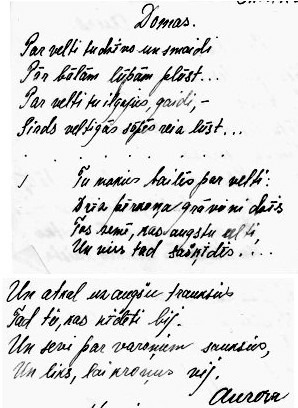 Domas.
Par velti tu un smaidi
Pār bālām lūpām plūst...
Par velti tu ilgojies, gaidi, –
Sirds veltīgās sāpēs reiz lūst...
. . . . . . .
Tu bailēs par velti:
Drīz pērkoņa grāvieni
Tos zemē, kas augstu celti
Un viss tad sašķīdīs...
Un atkal uz augšu trauksies
Tad tē, kas nīdēti bij.
Un sevi par varoņiem sauksies,
Un liks, lai kroņus vij.
Aurora